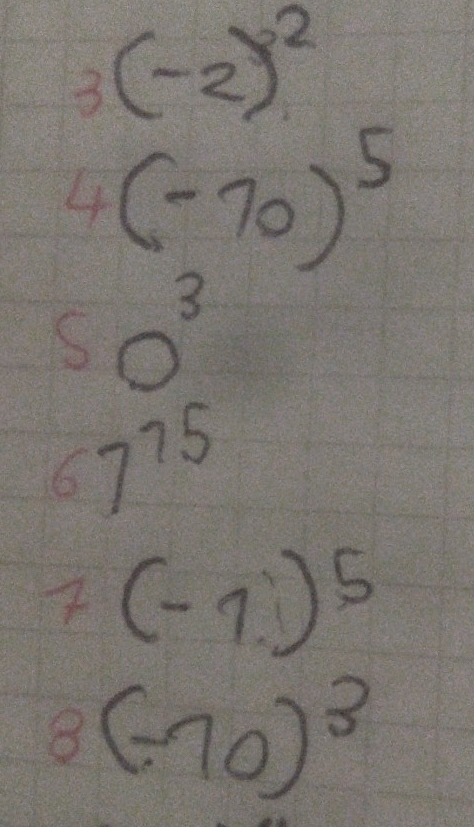 3 (-2)²
4 (-10)⁵
5 0³
6 1¹⁵
7 (-1)⁵
8 (-10)³